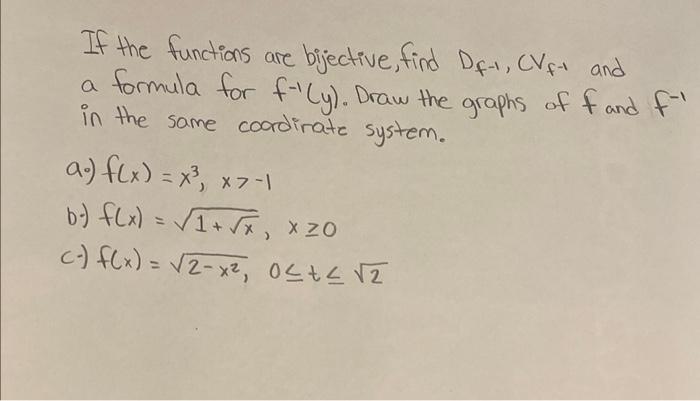 If the functions are bijective, find D_f⁻¹, CV_f⁻¹ and
a formula for f⁻¹(y). Draw the graphs of f and f⁻¹
in the same coordinate system.
a.) f(x) = x³, x > -1
b.) f(x) = √(1+√x), x ≥ 0
c.) f(x) = √(2-x²), 0 ≤ t ≤ √2